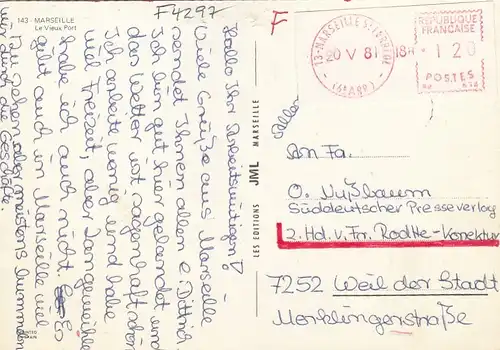 143 - MARSEILLE
Le Vieux Port
F4297
F
13-MARSEILLE ST FERREOL
20 V 81 18H
(6è ARRt)
REPUBLIQUE
FRANCAISE
1 20
POSTES
Hallo Ihr Arbeitswütigen!
Viele Grüße aus Marseille
sendet Ihnen allen E. Dittrich
Ich bin gut hier gelandet und
das Wetter ist sagenhaft schön
Ich arbeite wenig und habe
viel Freizeit, aber Langweile
habe ich auch nicht. Es
gibt auch in Marseille viel
Zu sehen aber meistens bummeln
wir durch die Geschäfte.
LES EDITIONS JML MARSEILLE
An Fa.
O. Nußbaum
Süddeutscher Presseverlag
z. Hd. v. Frr. Rodtke-Korrektur
7252 Weil der Stadt
Merklingerstraße